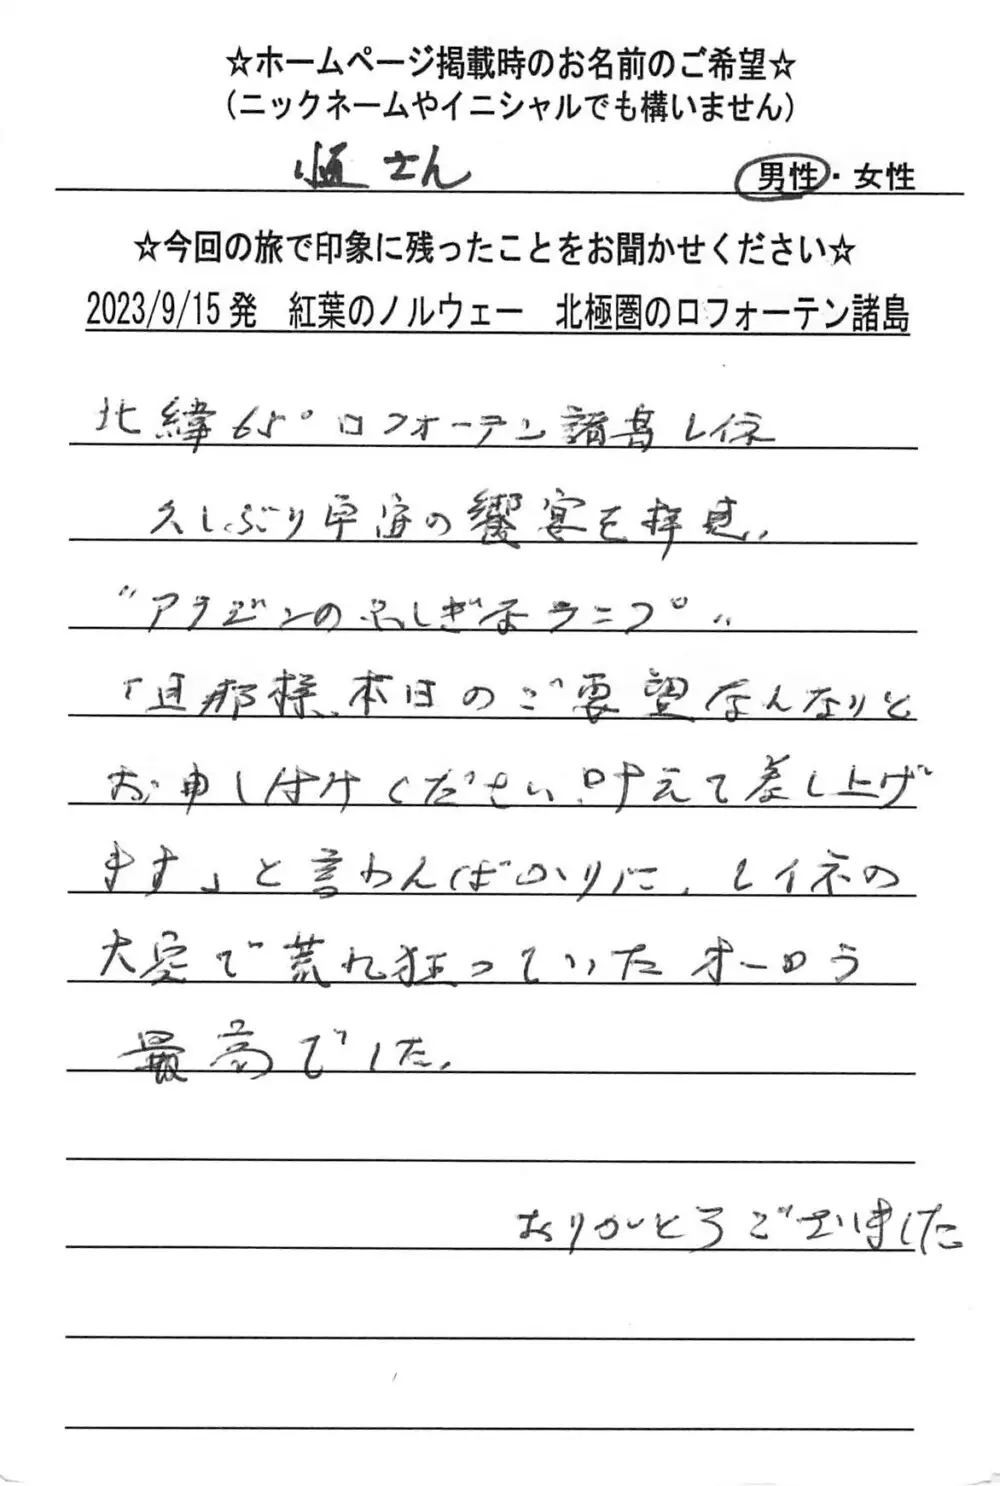 ☆ホームページ掲載時のお名前のご希望☆
(ニックネームやイニシャルでも構いません)
恒さん 男性・女性
☆今回の旅で印象に残ったことをお聞かせください☆
2023/9/15発 紅葉のノルウェー 北極圏のロフォーテン諸島
北緯65°ロフォーテン諸島レイネ
久しぶり宇宙の饗宴を拝見、
“アラジンのふしぎなランプ”
「旦那様、本日のご要望なんなりと
お申し付けください、叶えて差し上げ
ます」と言わんばかりに、レイネの
大空で荒れ狂っていたオーロラ
最高でした。
ありがとうございました